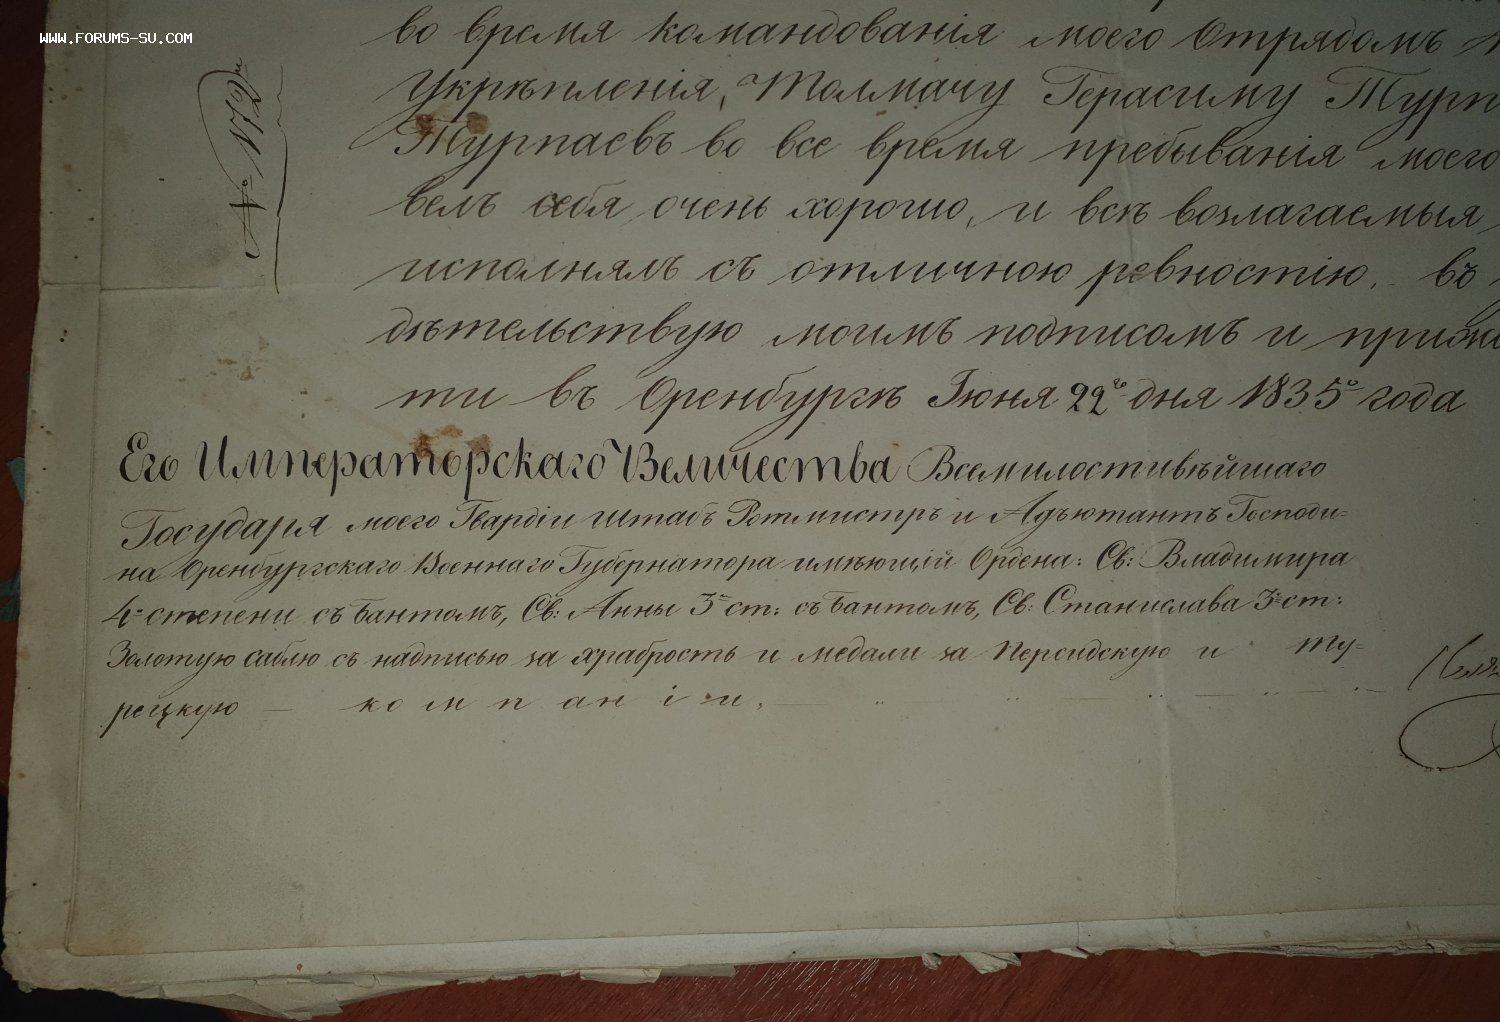 WWW.FORUMS-SU.COM
во время командованія моего Отрядомъ
Укрѣпленія, Толмачу Герасиму Турп
Турпаевъ во все время пребыванія моего
велъ себя очень хорошо, и всѣ возлагаемыя
исполнялъ съ отличною ревностію, въ
дѣтельствую моимъ подписомъ и прилож
ти въ Оренбургѣ Іюня 22го дня 1835го года
№ 172
Его Императорскаго Величества Всемилостивѣйшаго
Государя моего Гвардіи штабъ Ротмистръ и Адъютантъ Господи=
на Оренбургскаго Военнаго Губернатора имѣющій Ордена: Св: Владимира
4й степени съ бантомъ, Св: Анны 3й ст: съ бантомъ, Св: Станислава 3й ст:
Золотую саблю съ надписью за храбрость и медали за Персидскую и Ту-
рецкую — компаніи,